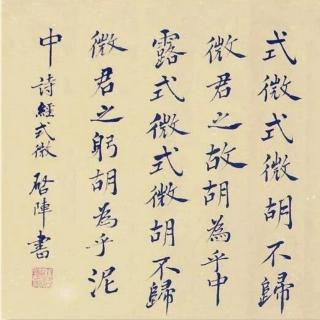 式微式微胡不歸
微君之故胡為乎中
露式微式微胡不歸
微君之躬胡為乎泥
中
詩經式微
啓陣書